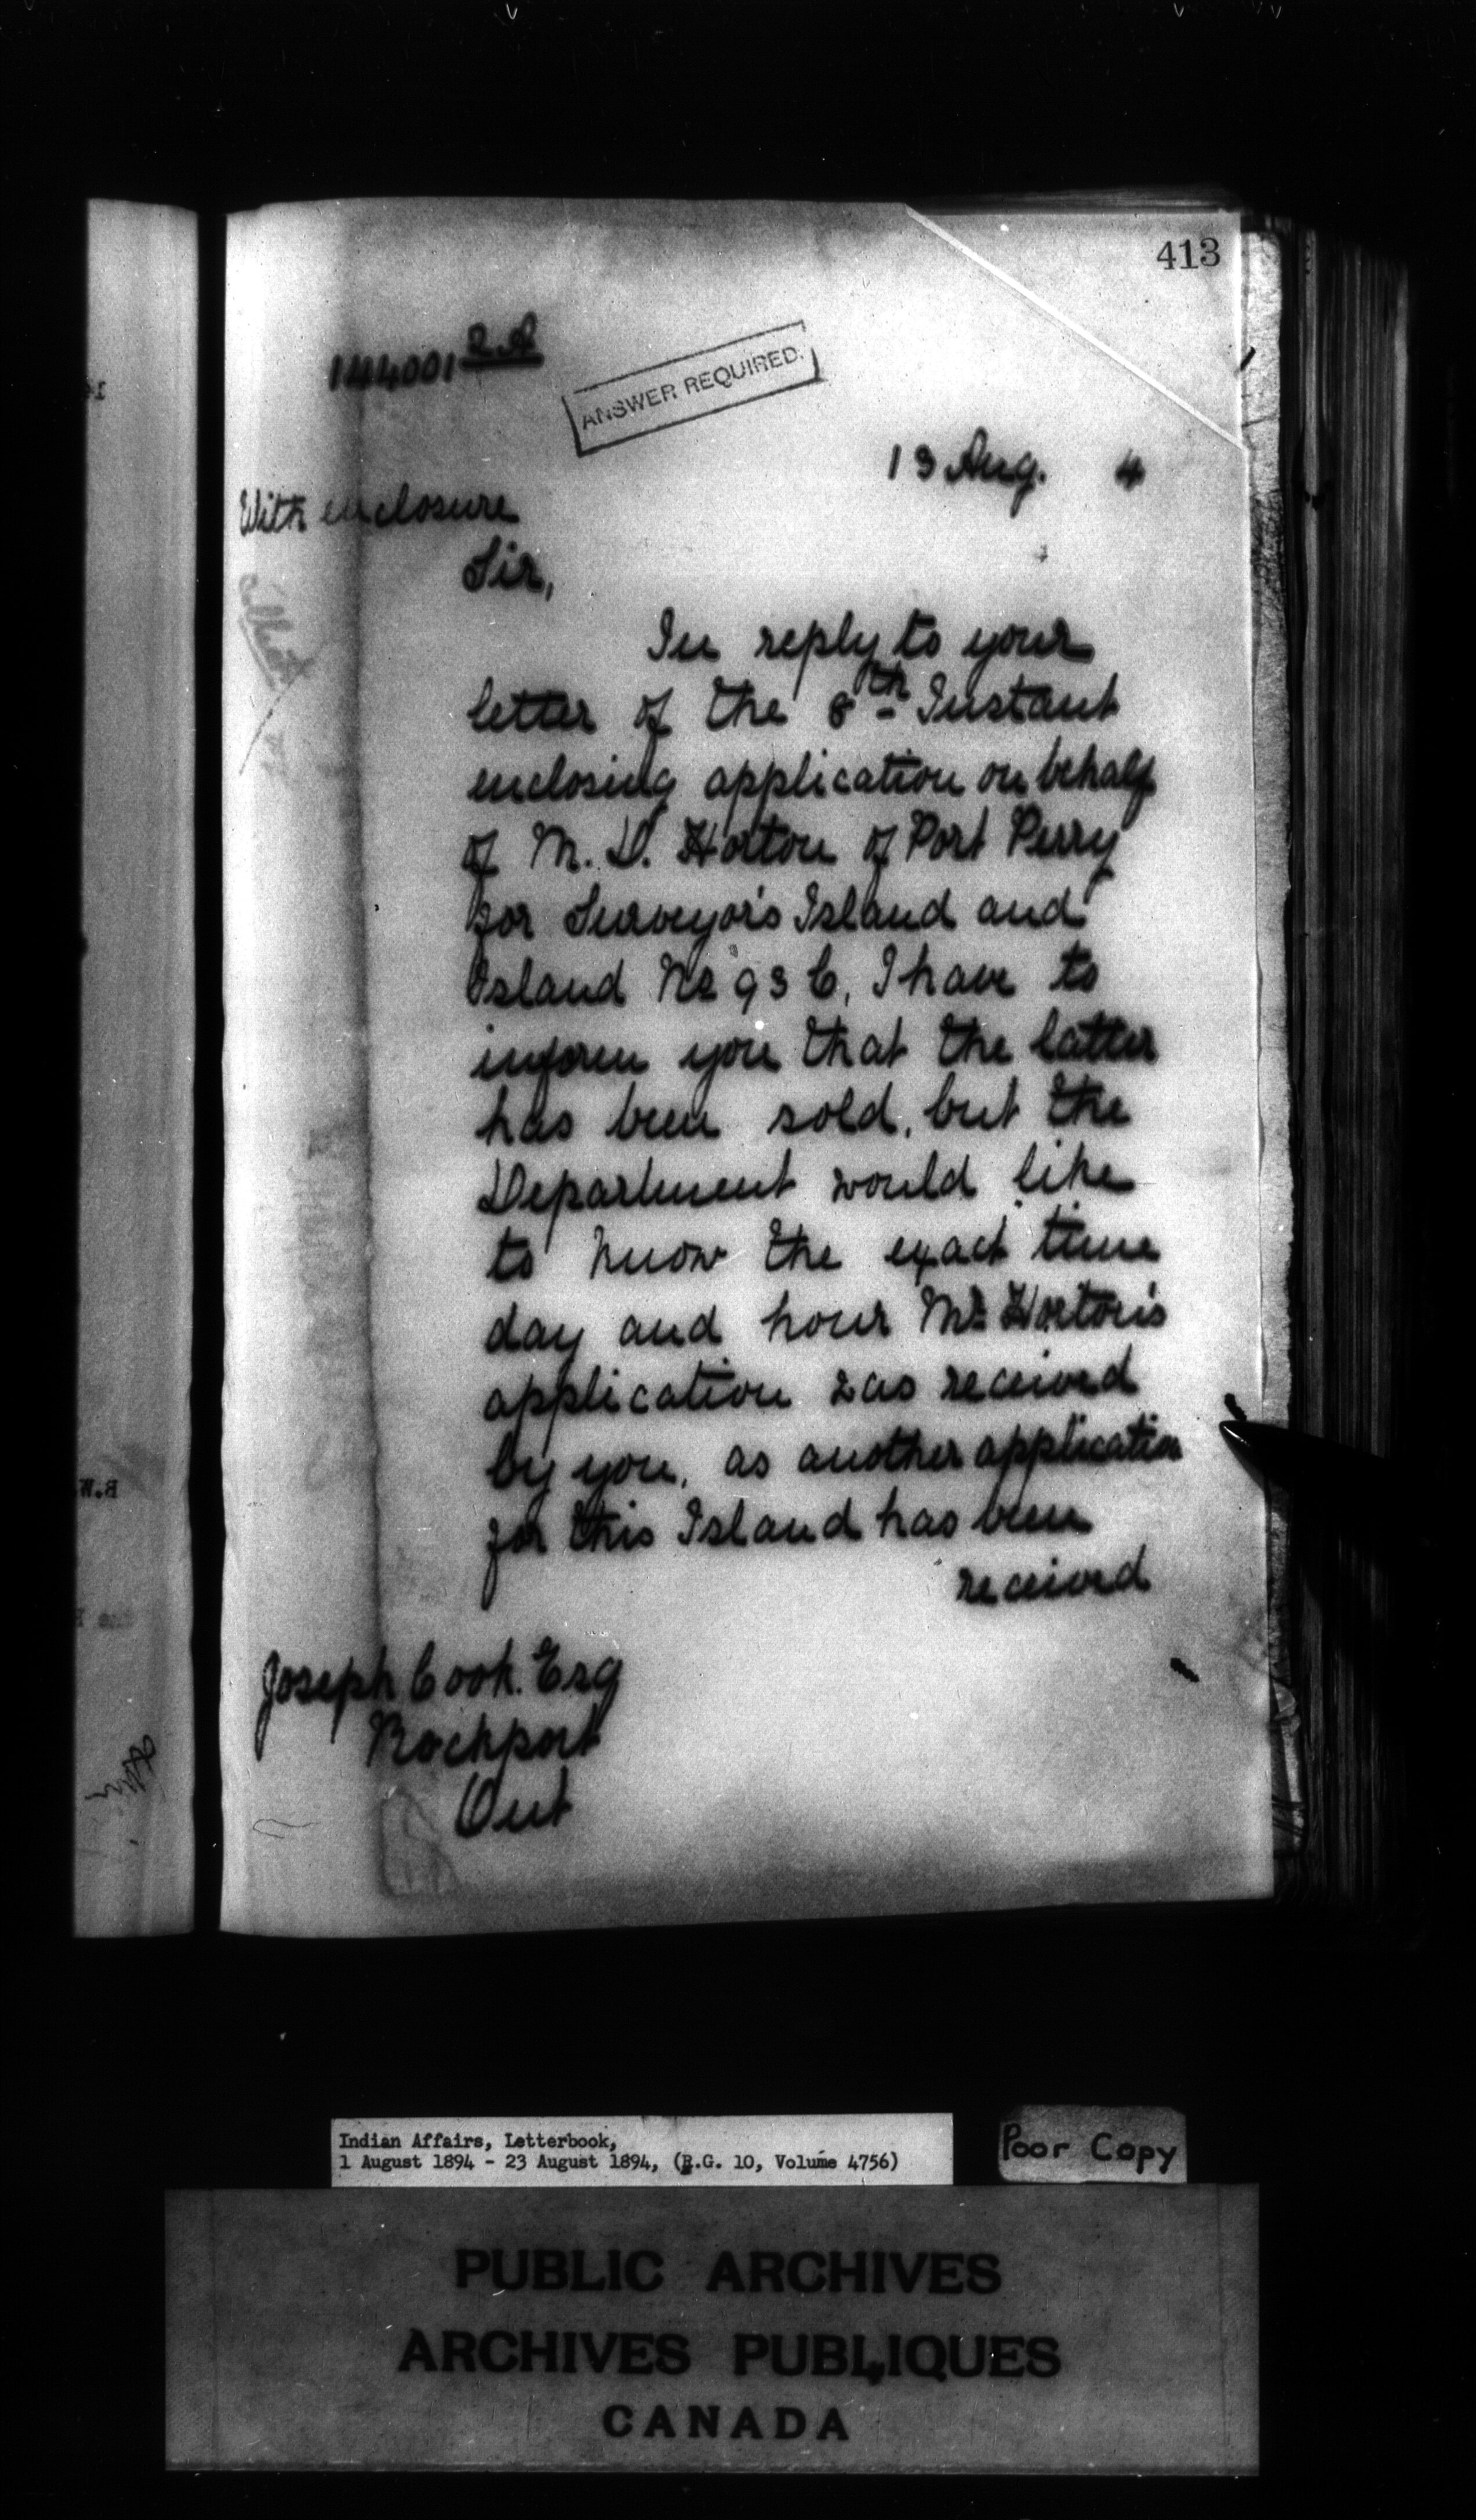 413
144001 2A
ANSWER REQUIRED.
13 Aug. 4
With enclosure
Sir,
In reply to your
letter of the 8th Instant
enclosing application on behalf
of M. D. Horton of Port Perry
for Surveyor's Island and
Island No 93 C, I have to
inform you that the latter
has been sold, but the
Department would like
to know the exact time
day and hour Mr Horton's
application was received
by you, as another application
for this Island has been
received
Joseph Cook. Esq
Rockport
Ont
Indian Affairs, Letterbook,
1 August 1894 - 23 August 1894, (R.G. 10, Volume 4756)
Poor Copy
PUBLIC ARCHIVES
ARCHIVES PUBLIQUES
CANADA